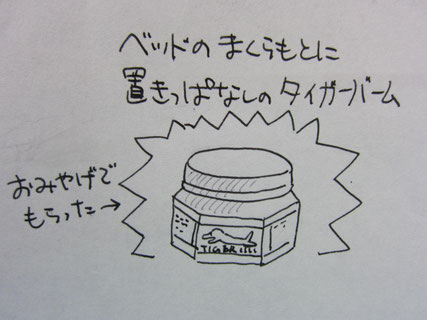 ベッドの まくらもとに
置きっぱなしの タイガーバーム
おみやげで
もらった→
TIGER